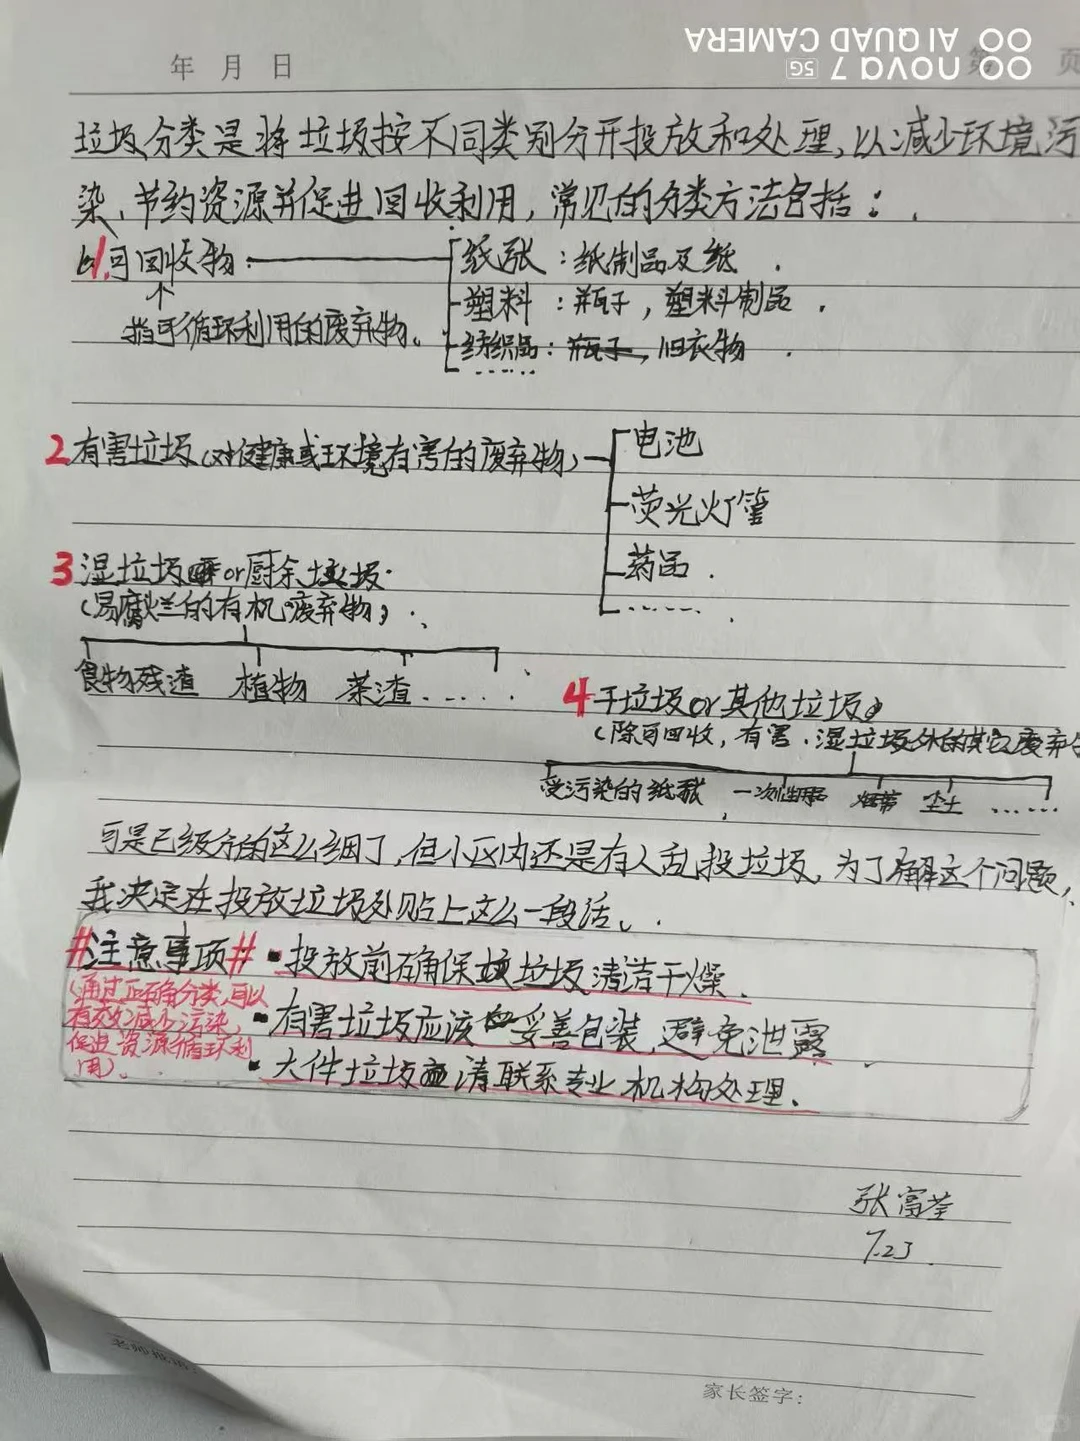 年 月 日
第 页
nova 7 5G
AI QUAD CAMERA
垃圾分类是将垃圾按不同类别分开投放和处理,以减少环境污
染、节约资源并促进回收利用,常见的分类方法包括:
1.可回收物
纸张:纸制品及纸
指可循环利用的废弃物。
塑料:瓶子,塑料制品
纺织品:瓶子,旧衣物
……
2.有害垃圾(对健康或环境有害的废弃物)
电池
荧光灯管
药品
……
3 湿垃圾or厨余垃圾
(易腐烂的有机废弃物)
食物残渣 植物 菜渣……
4 干垃圾or其他垃圾
(除可回收,有害、湿垃圾外的其它废弃
受污染的纸 一次性用品 烟蒂 尘土 ……
可是已经分的这么细了,但小区内还是有人乱投垃圾,为了解这个问题,
我决定在投放垃圾处贴上这么一段话。
#注意事项#
(通过正确分类,可以
有效减少污染,
促进资源循环利
用)。
·投放前确保垃圾清洁干燥.
·有害垃圾应该妥善包装,避免泄露
·大件垃圾请联系专业机构处理.
张富荃
7.23
老师批语:
家长签字: